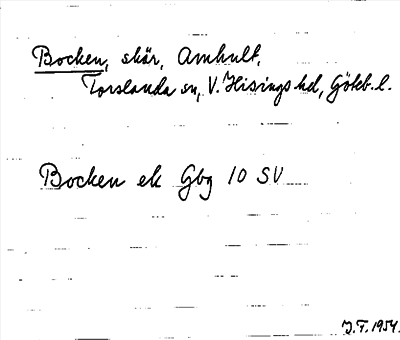 Bocken, skär, Amhult,
Torslanda sn, V. Hisings hd, Göteb. l.
Bocken ek Gbg 10 SV
J.F. 1954.